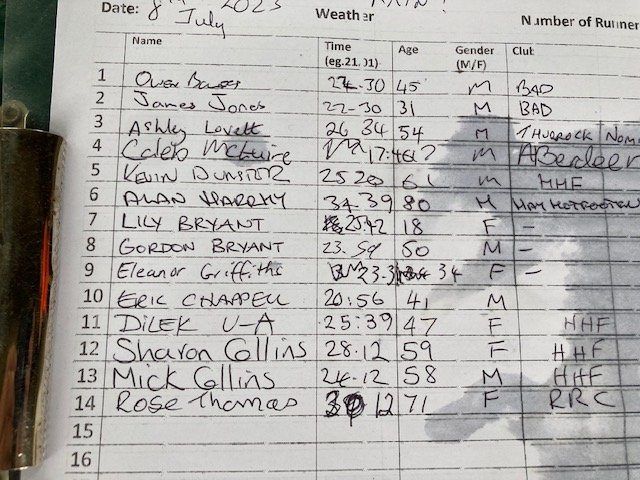 Date: 8 July 2023 Weather RAIN! Number of Runner
Name Time (eg.21.01) Age Gender (M/F) Club
1 Owen 24.30 45 M BAD
2 James Jones 22-30 31 M BAD
3 Ashley Lovett 26 34 54 M THURROCK NOM
4 Caleb McGuire 17:46 17 M Aberdeen
5 KEVIN DUNSTER 25 20 61 M HHF
6 ALAN 34.39 80 M
7 LILY BRYANT 25.42 18 F -
8 GORDON BRYANT 23.59 50 M -
9 Eleanor Griffiths 23.3 34 F -
10 ERIC CHAPPELL 20:56 41 M
11 DILEK U-A 25:39 47 F HHF
12 Sharon Collins 28.12 59 F HHF
13 Mick Collins 24.12 58 M HHF
14 Rose Thomas 12 71 F RRC
15
16